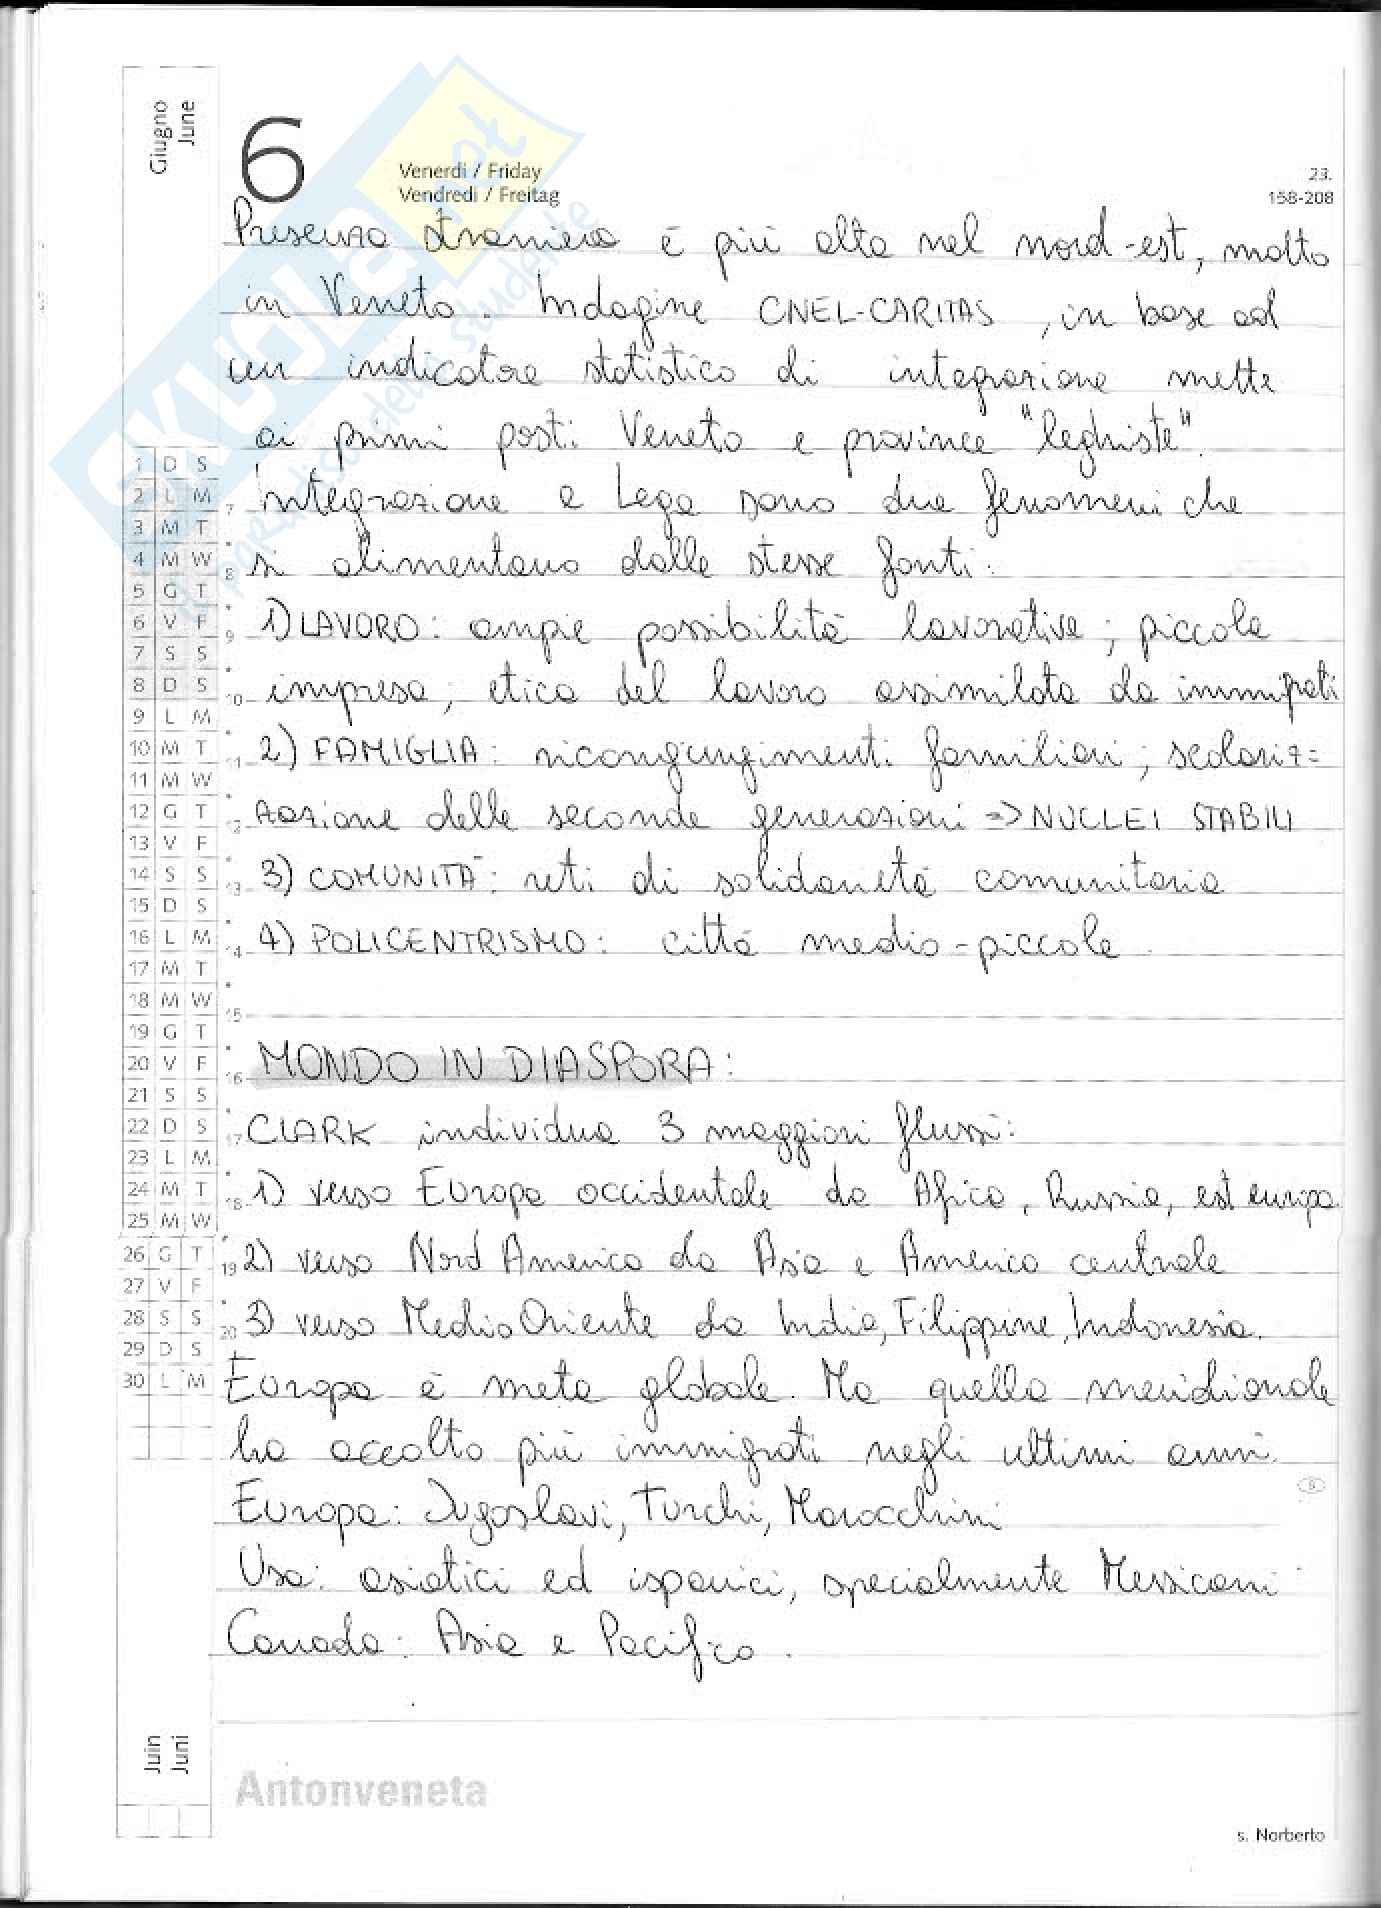 Giugno
June
6
Venerdì / Friday
Vendredi / Freitag
23.
158-208
Presenza straniera è più alta nel nord-est, molto
in Veneto. Indagine CNEL-CARITAS, in base ad
un indicatore statistico di integrazione mette
ai primi posti Veneto e province "leghiste".
Integrazione e Lega sono due fenomeni che
si alimentano dalle stesse fonti:
1) LAVORO: ampie possibilità lavorative; piccola
impresa; etica del lavoro assimilata da immigrati
2) FAMIGLIA: ricongiungimenti familiari; scolariz=
zazione delle seconde generazioni => NUCLEI STABILI
3) COMUNITÀ: reti di solidarietà comunitaria
4) POLICENTRISMO: città medio-piccole.
MONDO IN DIASPORA:
CLARK individua 3 maggiori flussi:
1) verso Europa occidentale da Africa, Russia, est europa
2) verso Nord America da Asia e America centrale
3) verso Medio Oriente da India, Filippine, Indonesia.
Europa è meta globale. Ma quella meridionale
ha accolto più immigrati negli ultimi anni.
Europa: Jugoslavi, Turchi, Marocchini
Usa: asiatici ed ispanici, specialmente Messicani
Canada: Asia e Pacifico.
1 D S
2 L M
3 M T
4 M W
5 G T
6 V F
7 S S
8 D S
9 L M
10 M T
11 M W
12 G T
13 V F
14 S S
15 D S
16 L M
17 M T
18 M W
19 G T
20 V F
21 S S
22 D S
23 L M
24 M T
25 M W
26 G T
27 V F
28 S S
29 D S
30 L M
7
8
9
10
11
12
13
14
15
16
17
18
19
20
Juin
Juni
Antonveneta
s. Norberto
skuola.net
il paradiso dello studente